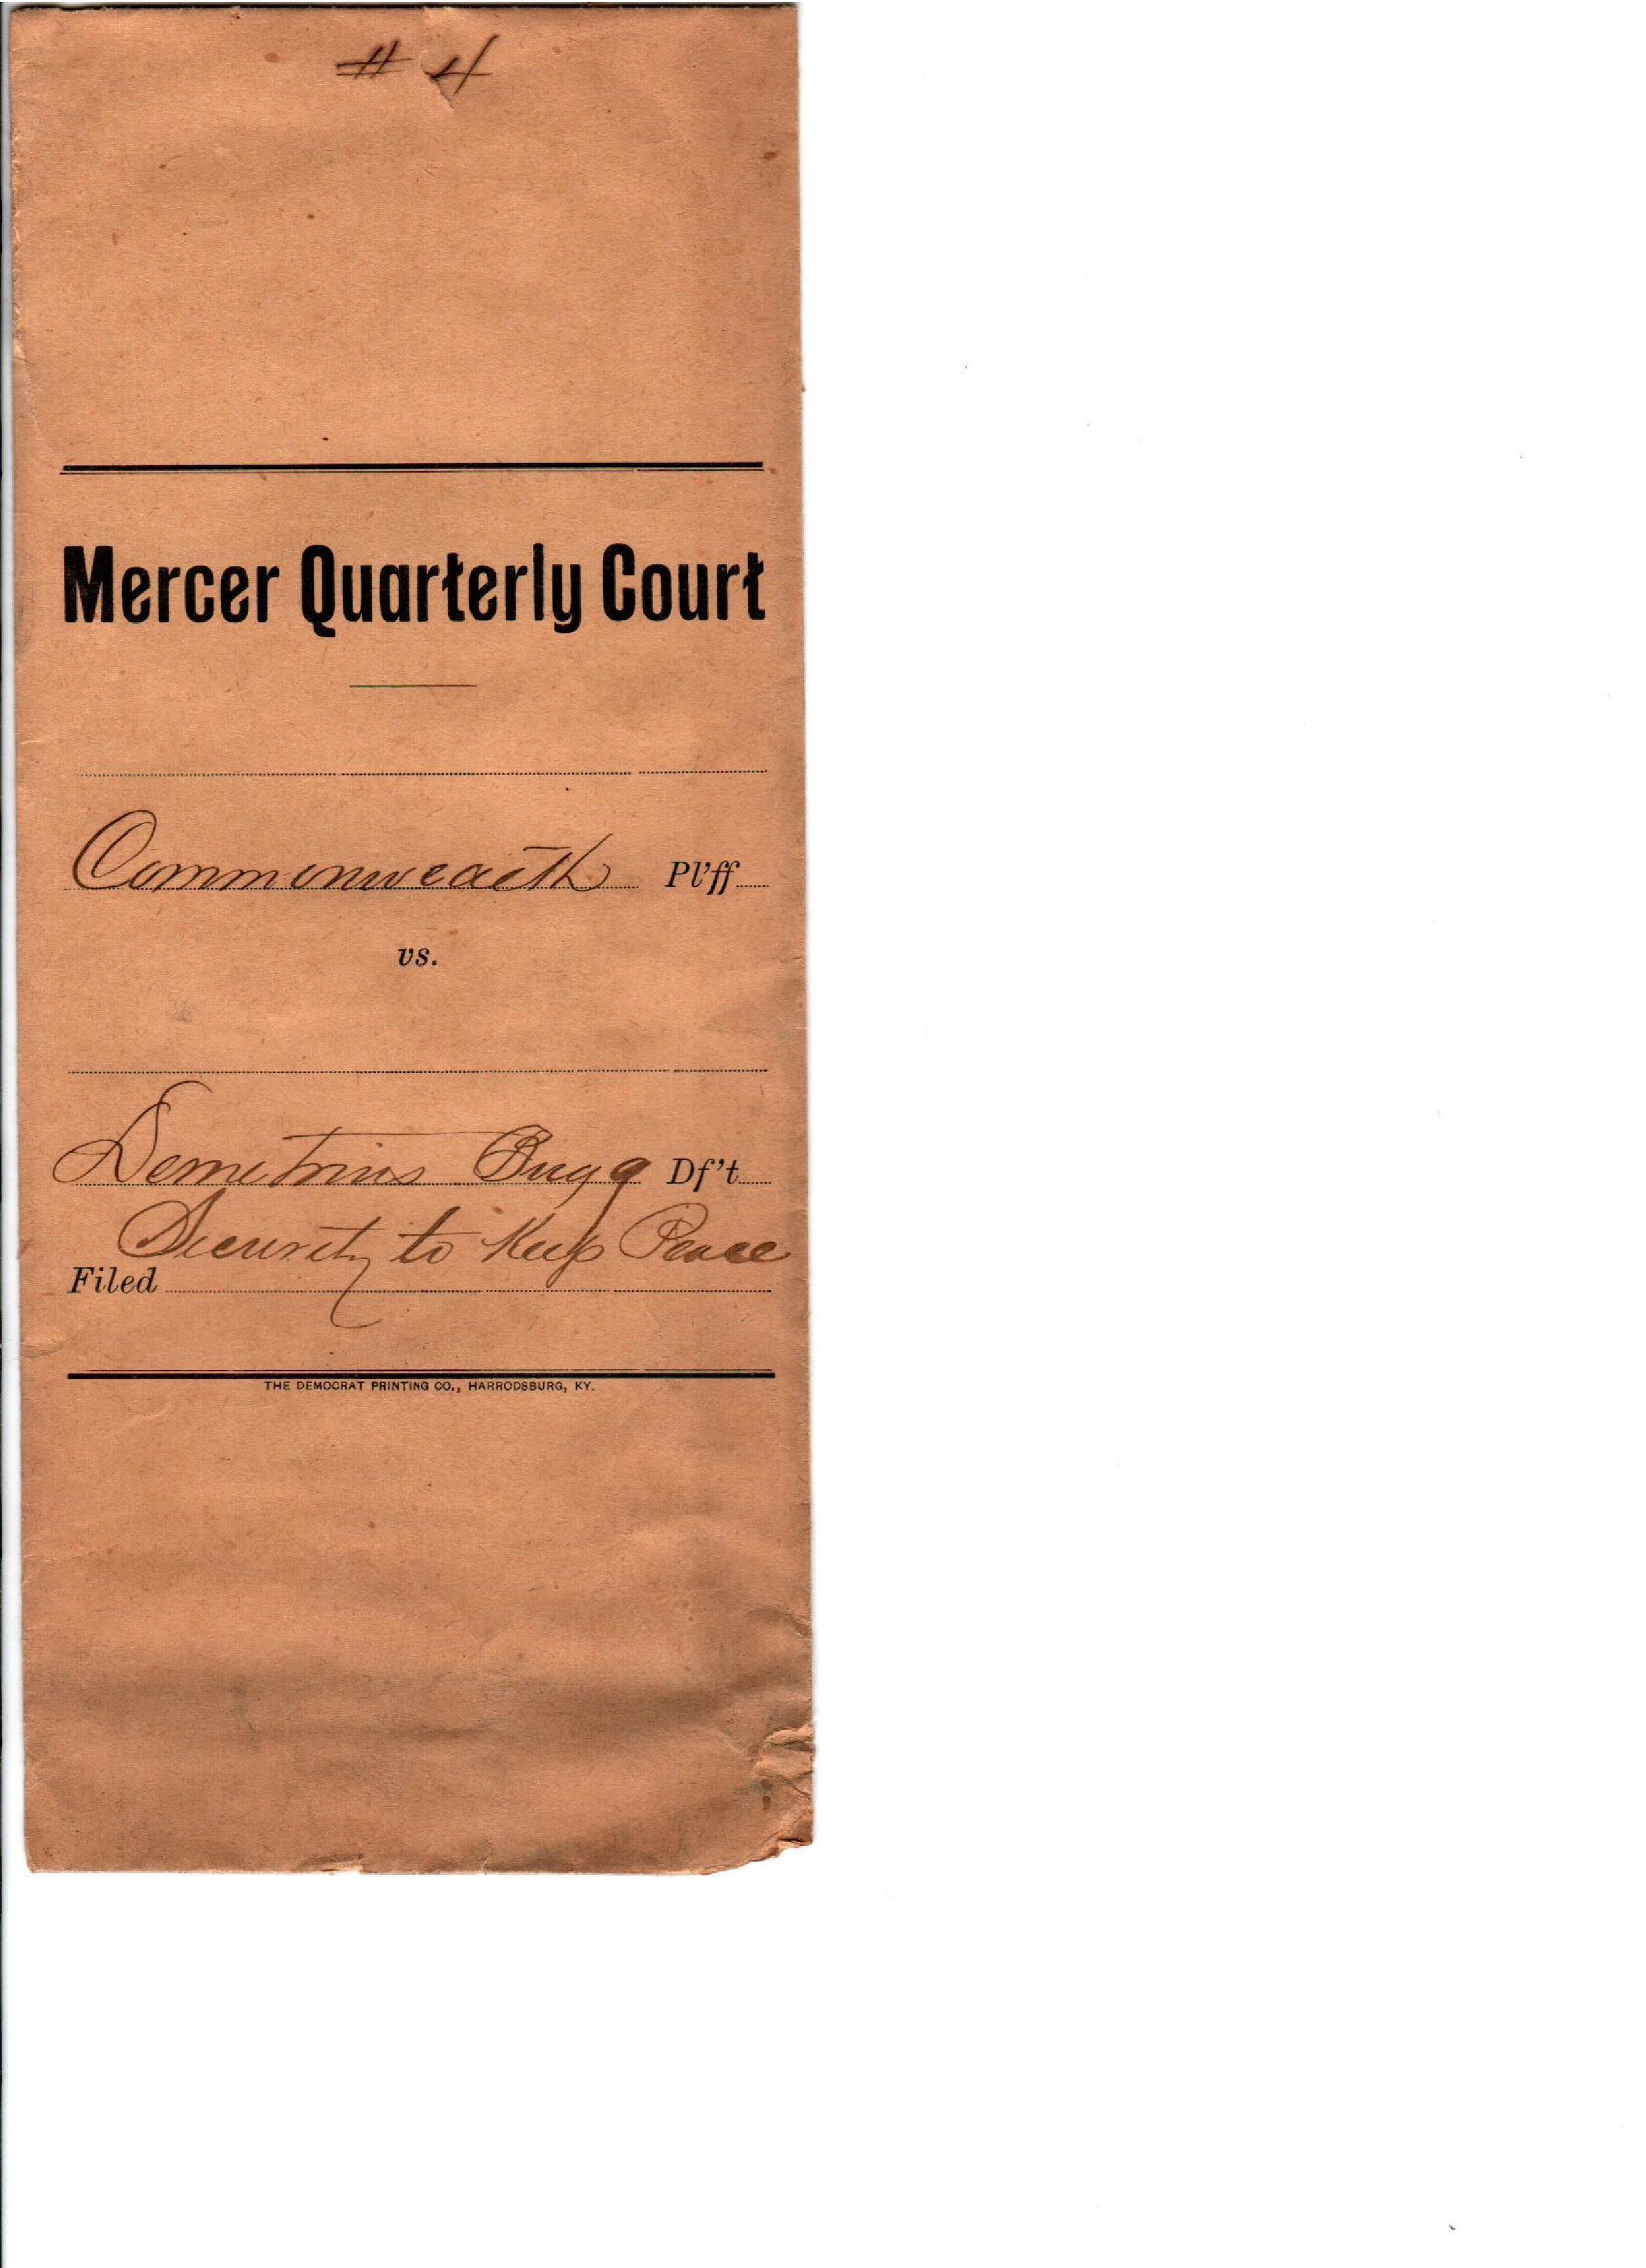 # 4
Mercer Quarterly Court
Commonwealth Pl'ff
vs.
Demetrius Bugg Df't
Security to Keep Peace
Filed
THE DEMOCRAT PRINTING CO., HARRODSBURG, KY.